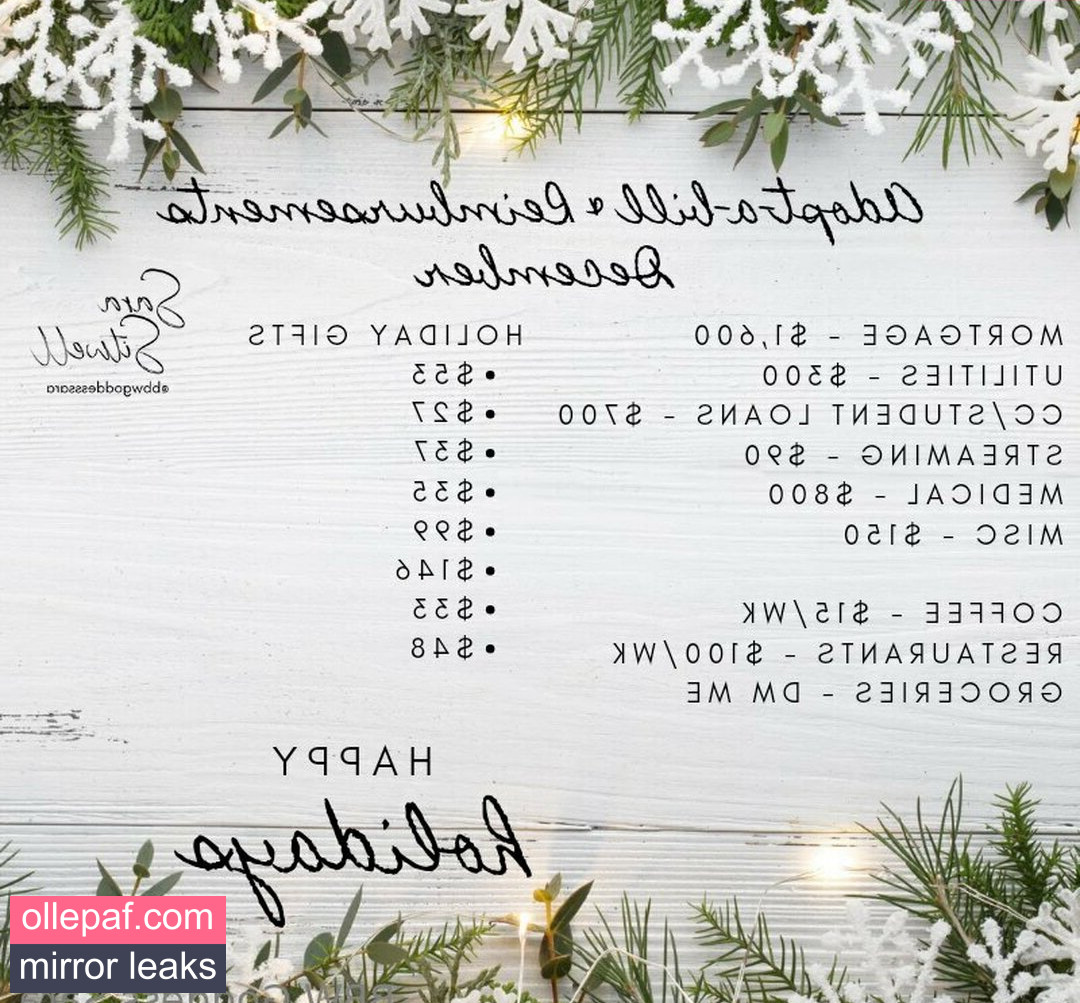 Adopt-a-bill & Reimbursements
December
Sara
Sitwell
@bbwgoddesssara
MORTGAGE - $1,600
UTILITIES - $300
CC/STUDENT LOANS - $700
STREAMING - $90
MEDICAL - $800
MISC - $150
COFFEE - $15/WK
RESTAURANTS - $100/WK
GROCERIES - DM ME
HOLIDAY GIFTS
• $53
• $27
• $37
• $35
• $99
• $146
• $33
• $48
HAPPY
holidays
ollepaf.com
mirror leaks